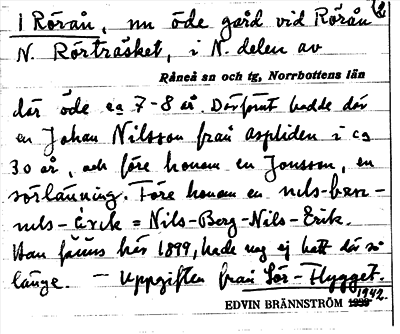 1 Rörån, nu öde gård vid Rörån 2
N. Rörträsket, i N. delen av
Råneå sn och tg, Norrbottens län
där öde ca 7-8 år. Därförut hade där
en Johan Nilsson från Aspliden i ca
30 år, och före honom en Jonsson, en
sörlänning. Före honom en nils-bærg-
nils-érik = Nils-Berg-Nils-Erik.
Han fanns här 1899, hade nog ej haft där så
länge. – Uppgiften från Sör-Flygget.
1942.
EDVIN BRÄNNSTRÖM